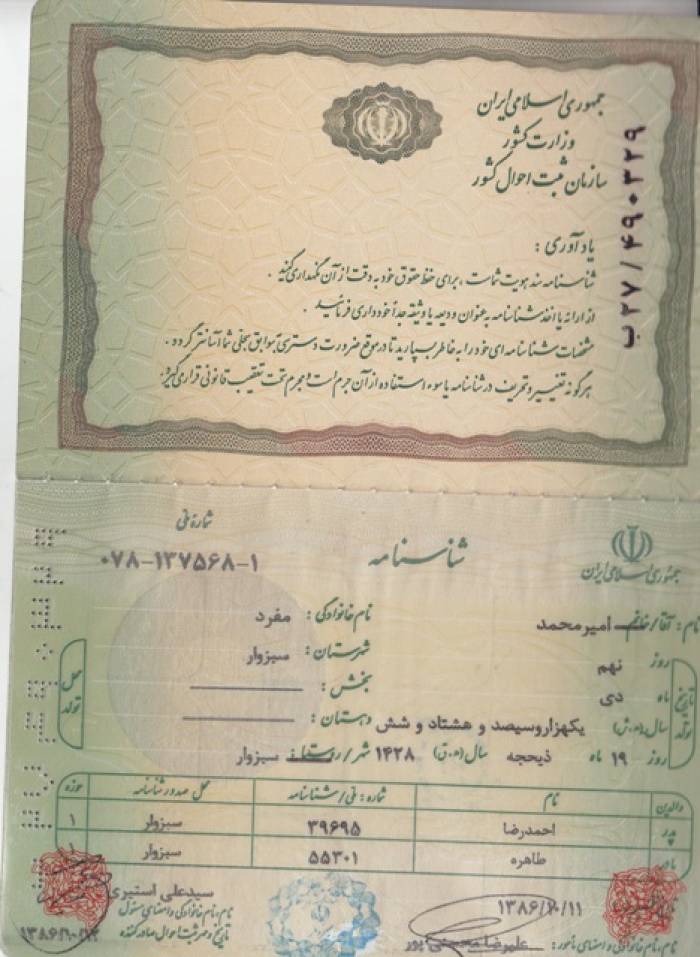 جمهوری اسلامی ایران
وزارت کشور
سازمان ثبت احوال کشور
ب۲۷/۴۹۰۳۲۹
یادآوری :
شناسنامه سند هویت شماست ، برای حفظ حقوق خود به دقت از آن نگهداری کنید .
از ارائه یا اخذ شناسنامه به عنوان ودیعه یا وثیقه جداً خودداری فرمائید .
مشخصات شناسنامه ای خود را به خاطر بسپارید تا در موقع ضرورت دسترسی به سوابق سجلی شما آسانتر گردد .
هرگونه تغییر و تحریف در شناسنامه یا سوء استفاده از آن جرم است و مجرم تحت تعقیب قانونی قرار می گیرد .
جمهوری اسلامی ایران
شناسنامه
شماره ملی
۰۷۸-۱۳۷۵۶۸-۱
نام : آقا/خانم امیرمحمد
نام خانوادگی : مفرد
تاریخ تولد
روز نهم
ماه دی
سال(ه.ش) یکهزاروسیصد و هشتاد و شش
روز ۱۹ ماه ذیحجه سال(ه.ق) ۱۴۲۸
محل تولد
شهرستان : سبزوار
بخش :
دهستان :
شهر/روستا سبزوار
والدین نام شماره : ملی/شناسنامه محل صدور شناسنامه حوزه
پدر احمدرضا ۳۹۶۹۵ سبزوار ۱
مادر طاهره ۵۵۳۰۱ سبزوار ۱
۱۳۸۶/۱۰/۱۱
نام خانوادگی و امضای مأمور : علیرضا محسنی پور
سیدعلی استیری
نام، نام خانوادگی و امضای مسئول
تاریخ و مهر ثبت احوال صادرکننده